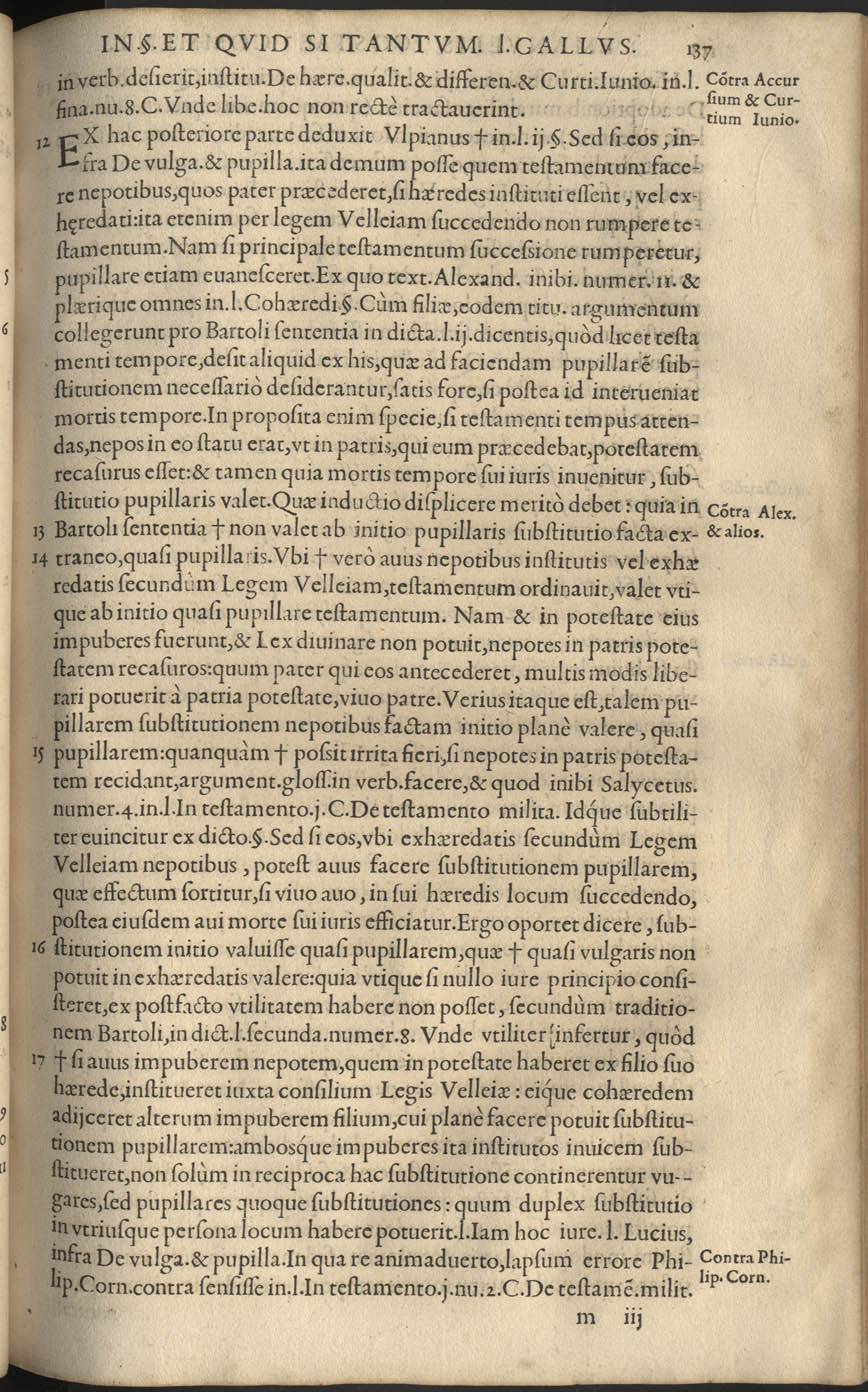 IN.§.ET QVID SI TANTVM. l.GALLVS. 137
in verb.desierit,institu.De hære.qualit.& differen.& Curti.Iunio. in.l.
fina.nu.8.C.Vnde libe.hoc non rectè tractauerint.
Cõtra Accur
sium & Cur-
tium Iunio.
12 EX hac posteriore parte deduxit Vlpianus † in.l.ij.§.Sed si eos, in-
fra De vulga.& pupilla.ita demum posse quem testamentum face-
re nepotibus,quos pater præcederet,si hæredes instituti essent, vel ex-
hęredati:ita etenim per legem Velleiam succedendo non rumpere te-
stamentum.Nam si principale testamentum successione rumperetur,
pupillare etiam euanesceret.Ex quo text.Alexand. inibi. numer. 11. &
plærique omnes in.l.Cohæredi.§.Cùm filiæ,eodem titu. argumentum
collegerunt pro Bartoli sententia in dicta.l.ij.dicentis,quòd licet testa
menti tempore,desit aliquid ex his,quæ ad faciendam pupillarẽ sub-
stitutionem necessariò desiderantur,satis fore,si postea id interueniat
mortis tempore.In proposita enim specie,si testamenti tempus atten-
das,nepos in eo statu erat,vt in patris,qui eum præcedebat,potestatem
recasurus esset:& tamen quia mortis tempore sui iuris inuenitur, sub-
stitutio pupillaris valet.Quæ inductio displicere meritò debet: quia in
Cõtra Alex.
& alios.
13 Bartoli sententia † non valet ab initio pupillaris substitutio facta ex-
14 traneo,quasi pupillaris.Vbi † verò auus nepotibus institutis vel exhæ
redatis secundùm Legem Velleiam,testamentum ordinauit,valet vti-
que ab initio quasi pupillare testamentum. Nam & in potestate eius
impuberes fuerunt,& Lex diuinare non potuit,nepotes in patris pote-
statem recasuros:quum pater qui eos antecederet, multis modis libe-
rari potuerit à patria potestate,viuo patre.Verius itaque est,talem pu-
pillarem substitutionem nepotibus factam initio planè valere, quasi
15 pupillarem:quanquàm † possit irrita fieri,si nepotes in patris potesta-
tem recidant,argument.gloss.in verb.facere,& quod inibi Salycetus.
numer.4.in.l.In testamento.j.C.De testamento milita. Idq́ue subtili-
ter euincitur ex dicto.§.Sed si eos,vbi exhæredatis secundùm Legem
Velleiam nepotibus, potest auus facere substitutionem pupillarem,
quæ effectum sortitur,si viuo auo, in sui hæredis locum succedendo,
postea eiusdem aui morte sui iuris efficiatur.Ergo oportet dicere, sub-
16 stitutionem initio valuisse quasi pupillarem,quæ † quasi vulgaris non
potuit in exhæredatis valere:quia vtique si nullo iure principio consi-
steret,ex postfacto vtilitatem habere non posset, secundùm traditio-
nem Bartoli,in dict.l.secunda.numer.8. Vnde vtiliter infertur, quòd
17 † si auus impuberem nepotem,quem in potestate haberet ex filio suo
hærede,institueret iuxta consilium Legis Velleiæ: eiq́ue cohæredem
adijceret alterum impuberem filium,cui planè facere potuit substitu-
tionem pupillarem:ambosq́ue impuberes ita institutos inuicem sub-
stitueret,non solùm in reciproca hac substitutione continerentur vu--
gares,sed pupillares quoque substitutiones: quum duplex substitutio
in vtriusque persona locum habere potuerit.l.Iam hoc iure. l. Lucius,
infra De vulga.& pupilla.In qua re animaduerto,lapsum errore Phi-
lip.Corn.contra sensisse in.l.In testamento.j.nu.2.C.De testamẽ.milit.
Contra Phi-
lip. Corn.
m iij